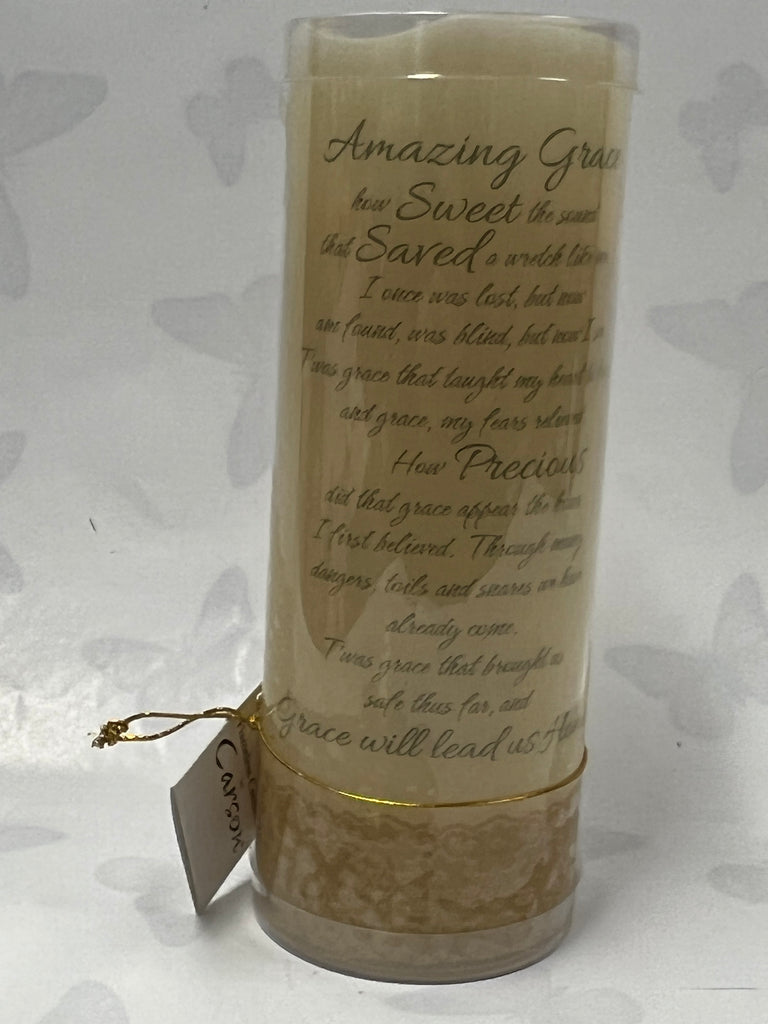 Amazing Grace
how Sweet the sound
that Saved a wretch like
I once was lost, but now
am found, was blind, but now I
T'was grace that taught my heart
and grace, my fears relieved
How Precious
did that grace appear the hour
I first believed. Through many
dangers, toils and snares we have
already come.
T'was grace that brought us
safe thus far, and
Grace will lead us
Carson